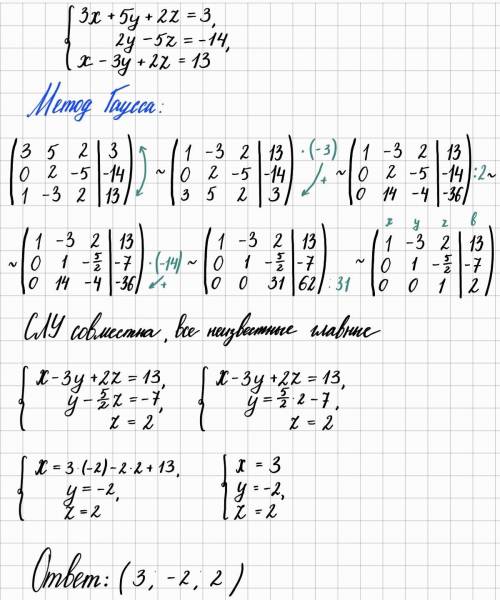 3x + 5y + 2z = 3,
2y - 5z = -14,
x - 3y + 2z = 13
Метод Гаусса:
(3 5 2 | 3; 0 2 -5 | -14; 1 -3 2 | 13) ~ (1 -3 2 | 13; 0 2 -5 | -14; 3 5 2 | 3) ·(-3) + ~ (1 -3 2 | 13; 0 2 -5 | -14; 0 14 -4 | -36) :2 ~
~ (1 -3 2 | 13; 0 1 -5/2 | -7; 0 14 -4 | -36) ·(-14) + ~ (1 -3 2 | 13; 0 1 -5/2 | -7; 0 0 31 | 62) :31 ~ x y z в (1 -3 2 | 13; 0 1 -5/2 | -7; 0 0 1 | 2)
СЛУ совместна, все неизвестные главные
x - 3y + 2z = 13, x - 3y + 2z = 13,
y - 5/2 z = -7, y = 5/2 · 2 - 7,
z = 2 z = 2
x = 3·(-2) - 2·2 + 13, x = 3
y = -2, y = -2,
z = 2 z = 2
Ответ: (3; -2; 2)